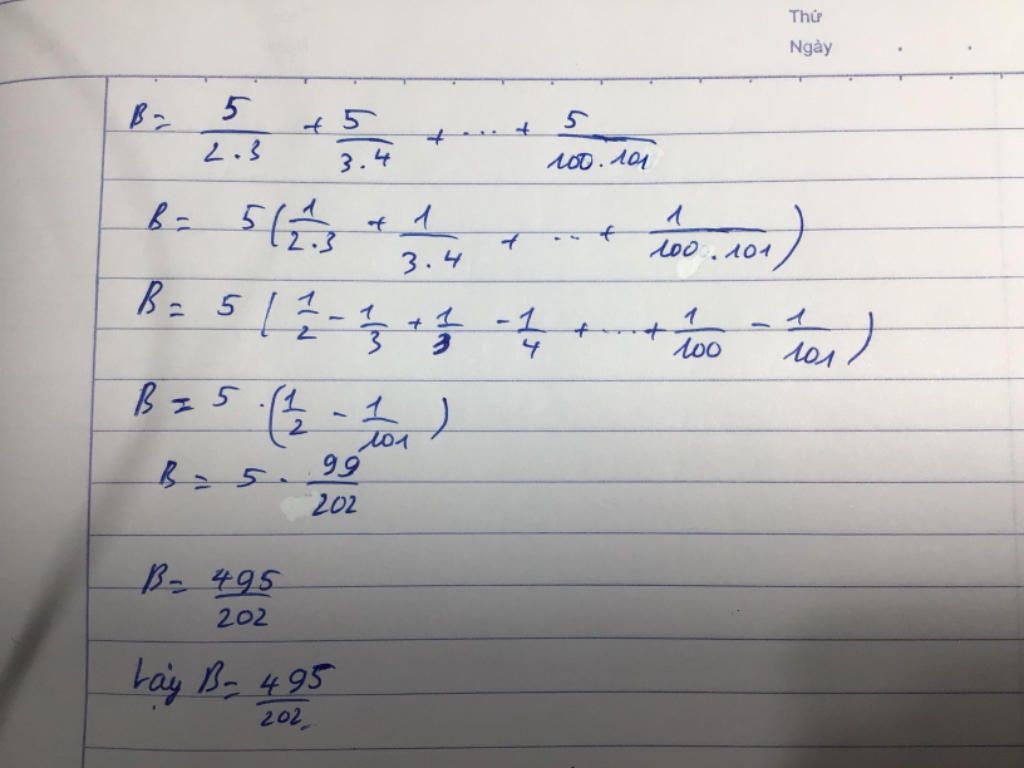 Thứ
Ngày . .
B = 5/2.3 + 5/3.4 + ... + 5/100.101
B = 5(1/2.3 + 1/3.4 + ... + 1/100.101)
B = 5(1/2 - 1/3 + 1/3 - 1/4 + ... + 1/100 - 1/101)
B = 5.(1/2 - 1/101)
B = 5.99/202
B = 495/202
Vậy B = 495/202